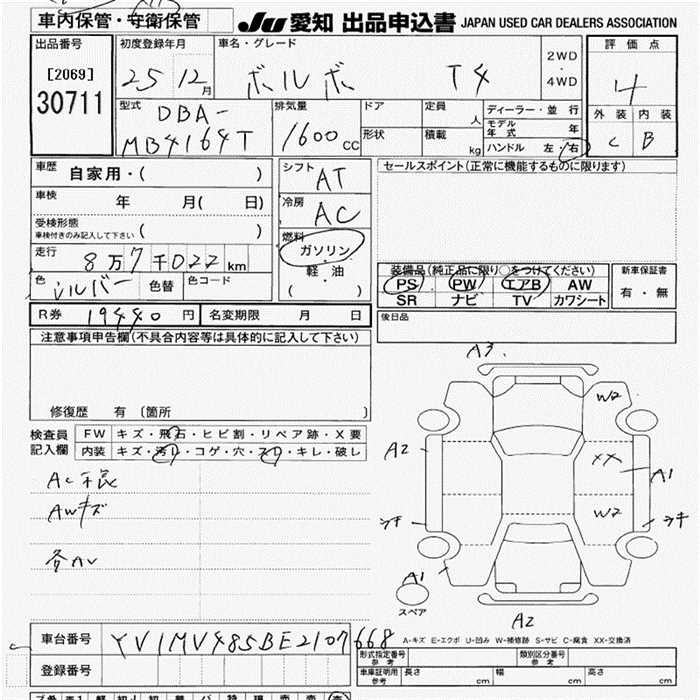 車内保管・守衛保管
JU 愛知 出品申込書 JAPAN USED CAR DEALERS ASSOCIATION
出品番号
[2069]
30711
初度登録年月
25 12月
車名・グレード
ボルボ T4
2WD
・
4WD
評価点
4
外装 内装
C B
型式
DBA-
MB4164T
排気量
1600 CC
ドア
形状
定員 人
積載 kg
ディーラー・並行
モデル年式 年
ハンドル 左・右
車歴 自家用・( )
車検 年 月( 日)
受検形態
車検付きのみ記入して下さい ( )
走行 8万7千022km
色 シルバー 色替 色コード
シフト AT
冷房 AC
燃料
ガソリン
・
軽・油
( )
セールスポイント(正常に機能するものに限ります)
装備品(純正品に限り○をつけてください)
PS PW エアB AW
SR ナビ TV カワシート
新車保証書
有・無
R券 19440円 名変期限 月 日
後日品
注意事項申告欄(不具合内容等は具体的に記入して下さい)
修復歴 有 〔箇所 〕
検査員
記入欄
FW キズ・飛石・ヒビ割・リペア跡・X要
内装 キズ・汚れ・コゲ・穴・スレ・キレ・破レ
AC不良
AWキズ
各AU
A3.
W2
A2
XX
A1
W2
A1
スペア
A2
A-キズ E-エクボ U-凹み W-補修跡 S-サビ C-腐食 XX-交換済
車台番号 YV1MV485BE2107668
登録番号
形式指定番号
参考
類別区分番号
参考
車庫証明用
参考
長さ cm 幅 cm 高さ cm